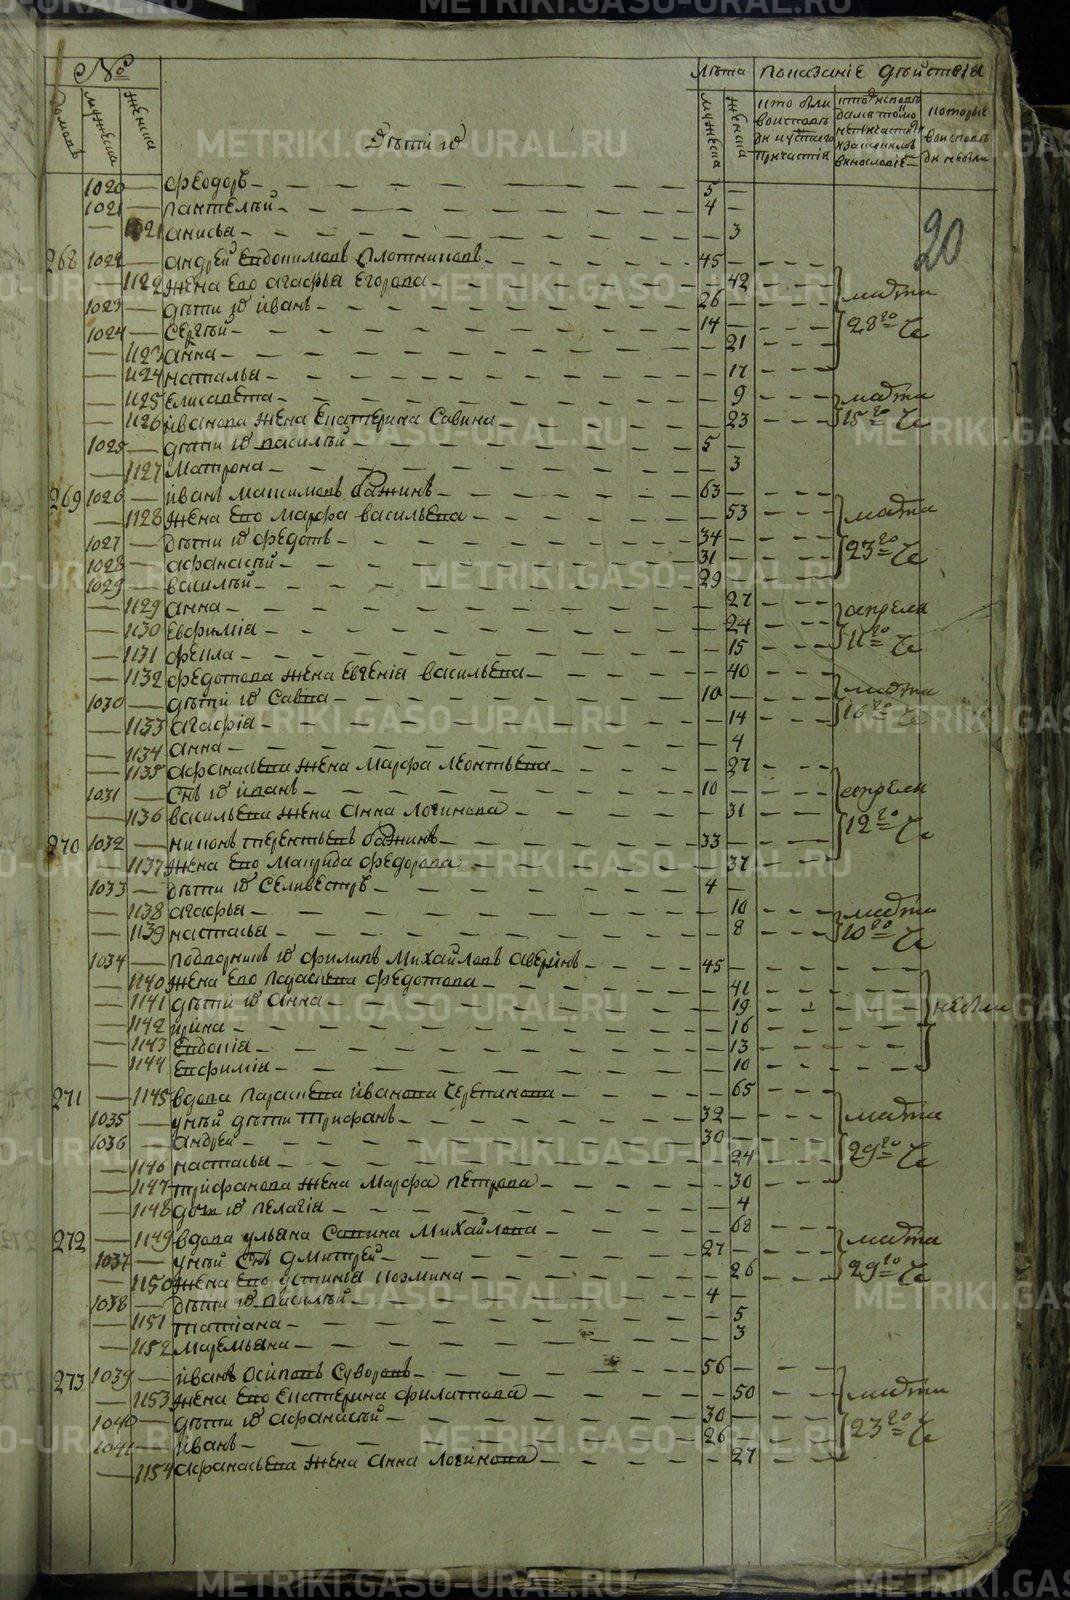 № Лѣта Показанїе дѣйства
домовъ мужеска женска Дѣти ихъ мужеска женска кто были
воисповѣ
ди и устаго
причастїя которые
воисповѣ
ди небыли
20
1020 — феодоръ — 5 —
1021 — пантелѣй — 4 —
— 1121 анисья — — 3
268 1022 — андрей Евдокимовъ плотниковъ — 45 —
— 1122 жена Его агафья Егорова — — 42
1023 — дѣти их иванъ — 26 — марта
1024 — Сергѣй — 14 — 28го Че
— 1123 анна — — 21
— 1124 наталья — — 17
— 1125 Елисавета — — 9 марта
— 1126 иванова жена Екатерина Савина — — 23 15го Че
1025 — дѣти их василѣй — 5 —
— 1127 Матрона — — 3
269 1026 — иванъ макимовъ бажинъ — 63 —
— 1128 жена Его марфа васильева — — 53 марта
1027 — дѣти их федотъ — 34 —
1028 — афанасѣй — 31 — 23го Че
1029 — василѣй — 29 —
— 1129 анна — — 27 апреля
— 1130 Евфимїя — — 24 11го Че
— 1131 фекла — — 15
— 1132 федотова жена Евгенїя васильева — — 40 марта
1030 — дѣти их Савва — 10 — 16го Че
— 1133 агафїя — — 14
— 1134 анна — — 4
— 1135 афанасьева жена марфа леонтьева — — 27
1031 — Снъ их иванъ — 10 — апреля
— 1136 васильева жена анна логинова — — 31 12го Че
270 1032 — никонъ терентьевъ бажинъ — 33 —
— 1137 жена Его макрида федорова — — 37
1033 — дѣти их Селивестръ — 4 —
— 1138 агафья — — 10 марта
— 1139 настасья — — 8 10го Че
1034 — подворникъ их филипъ михайловъ аверинъ — 45 —
— 1140 жена Его параскева федотова — — 41
— 1141 дѣти их анна — — 19 небыли
— 1142 ирина — — 16
— 1143 Евдокїя — — 13
— 1144 Евфимїя — — 10
271 — 1145 вдова параскева иванова Черепанова — — 65
1035 — унѣй дѣти трифанъ — 32 — марта
1036 — андрей — 30 —
— 1146 настасья — — 24 29го Че
— 1147 трифанова жена марфа петрова — — 30
— 1148 дочь их пелагїя — — 4
272 — 1149 вдова ульяна Савина михайлова — — 68
1037 — унѣй Снъ дмитрей — 27 — марта
— 1150 жена Его устинья козмина — — 26 29го Че
1038 — дѣти их василѣй — 4 —
— 1151 татїана — — 5
— 1152 маремьяна — — 3
273 1039 — иванъ осиповъ Суворовъ — 56 —
— 1153 жена Его Екатерина филатова — — 50 марта
1040 — дѣти их афанасѣй — 30 —
1041 — иванъ — 26 — 23го Че
— 1154 афанасьева жена анна логинова — — 27
METRIKI.GASO-URAL.RU